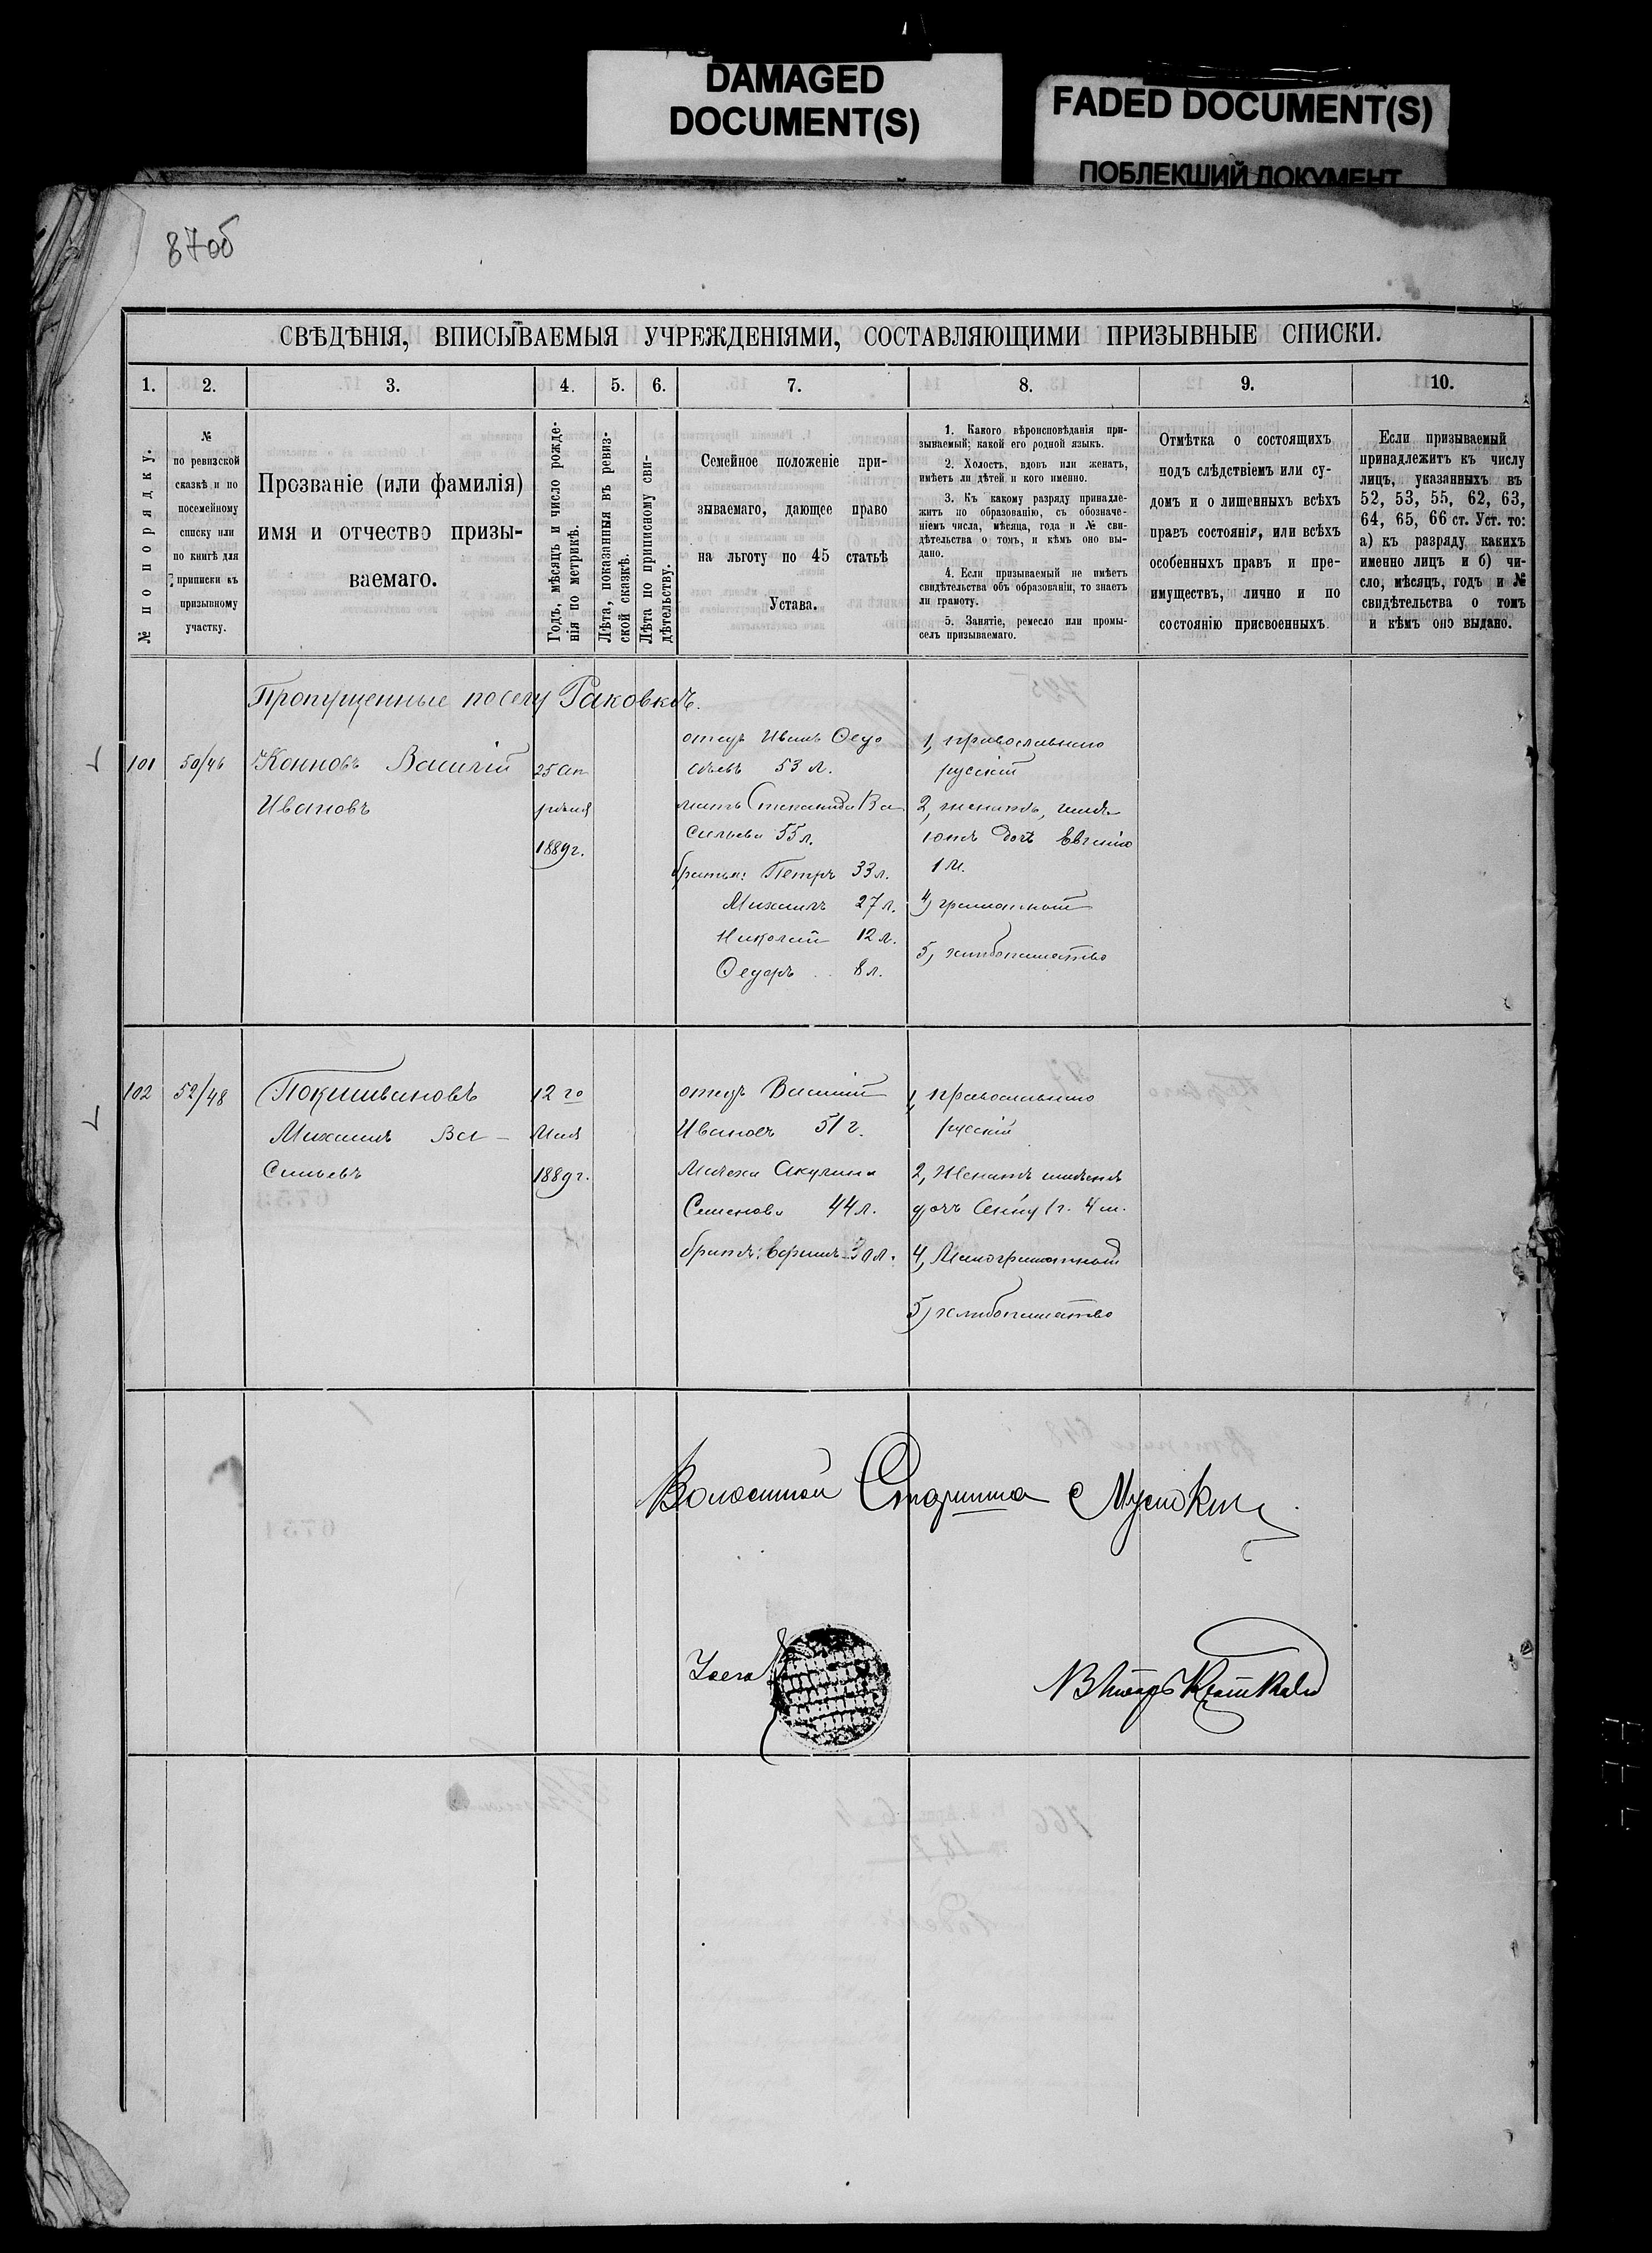 DAMAGED
DOCUMENT(S)
FADED DOCUMENT(S)
ПОБЛЕКШИЙ ДОКУМЕНТ
87об
СВѢДѢНІЯ, ВПИСЫВАЕМЫЯ УЧРЕЖДЕНІЯМИ, СОСТАВЛЯЮЩИМИ ПРИЗЫВНЫЕ СПИСКИ.
1. 2. 3. 4. 5. 6. 7. 8. 9. 10.
№ по порядку.
№
по ревизской
сказкѣ и по
посемейному
списку или
по книгѣ для
приписки къ
призывному
участку.
Прозваніе (или фамилія)
имя и отчество призы-
ваемаго.
Годъ, мѣсяцъ и число рожде-
нія по метрикѣ.
Лѣта, показанныя въ ревиз-
ской сказкѣ.
Лѣта по приписному сви-
дѣтельству.
Семейное положеніе при-
зываемаго, дающее право
на льготу по 45 статьѣ
Устава.
1. Какого вѣроисповѣданія при-
зываемый; какой его родной языкъ.
2. Холостъ, вдовъ или женатъ,
имѣетъ ли дѣтей и кого именно.
3. Къ какому разряду принадле-
житъ по образованію, съ обозначе-
ніемъ числа, мѣсяца, года и № сви-
дѣтельства о томъ, и кѣмъ оно вы-
дано.
4. Если призываемый не имѣетъ
свидѣтельства объ образованіи, то знаетъ
ли грамоту.
5. Занятіе, ремесло или промы-
селъ призываемаго.
Отмѣтка о состоящихъ
подъ слѣдствіемъ или су-
домъ и о лишенныхъ всѣхъ
правъ состоянія, или всѣхъ
особенныхъ правъ и пре-
имуществъ, лично и по
состоянію присвоенныхъ.
Если призываемый
принадлежитъ къ числу
лицъ, указанныхъ въ
52, 53, 55, 62, 63,
64, 65, 66 ст. Уст. то:
а) къ разряду какихъ
именно лицъ и б) чи-
сло, мѣсяцъ, годъ и №
свидѣтельства о томъ
и кѣмъ оно выдано.
Пропущенные по селу Раковкѣ.
101 50/46 Конновъ Василій
Ивановъ
25 Ап
рѣля
1889 г.
отецъ Иванъ Ѳедо
53 л.
мать Степанида Ва
сильева 55 л.
братья: Петръ 33 л.
Михаилъ 27 л.
Николай 12 л.
Ѳедоръ 8 л.
1, православнаго
русскій
2, женатъ, имѣ
дочь Евгенію
1 м.
4, грамотный
5, хлѣбопашество
102 52/48
Михаилъ Ва-
сильевъ
12 го
Мая
1889 г.
отецъ Василій
Ивановъ 51 г.
Мачеха Акулина
Семенова 44 л.
братъ: Ефимъ 30 л.
1, православнаго
русскій
2, Женатъ имѣетъ
дочь Анну 1 г. 4 м.
4, Малограмотный
5, хлѣбопашество
Волостной Старшина